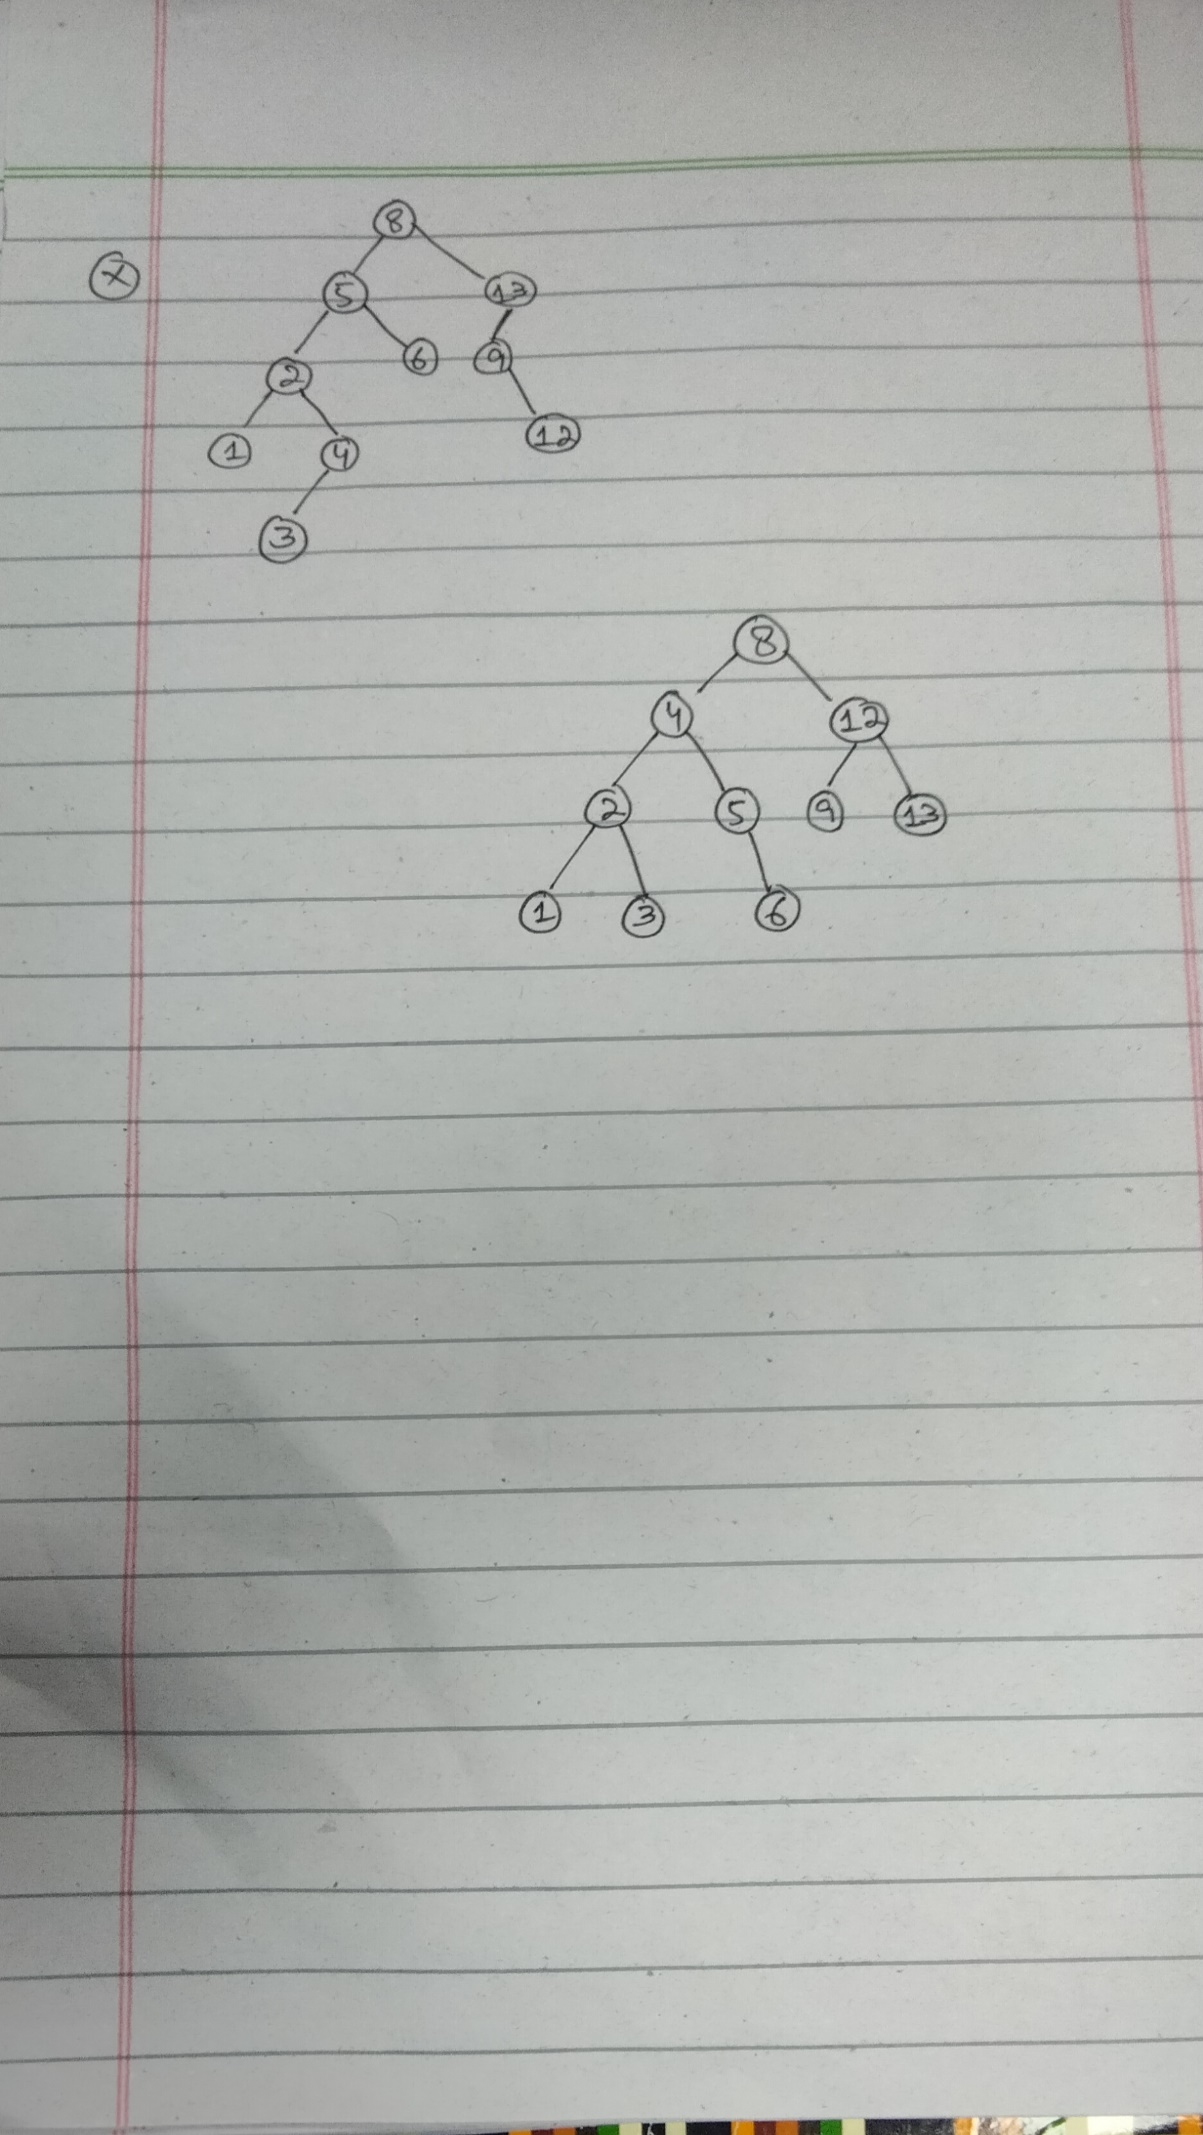 8
x 5 13
2 6 9
1 4 12
3
8
4 12
2 5 9 13
1 3 6